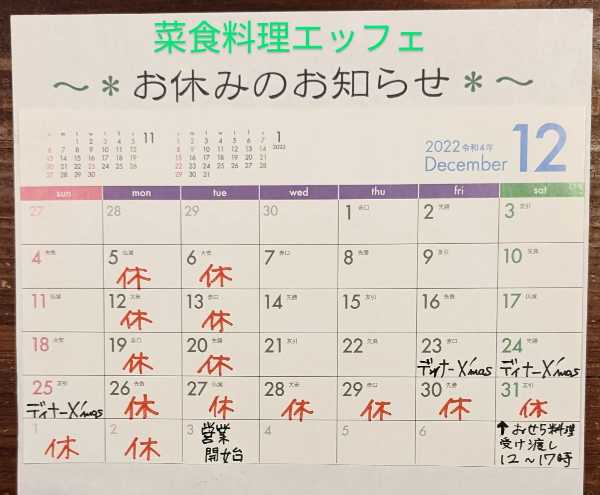 菜食料理エッフェ
~＊お休みのお知らせ＊~
11
1
2022 令和4年
December
12
sun mon tue wed thu fri sat
27 28 29 30 1 赤口 2 先勝 3 友引
4 先負 5 仏滅 6 大安 7 赤口 8 先勝 9 友引 10 先負
休 休
11 仏滅 12 大安 13 赤口 14 先勝 15 友引 16 先負 17 仏滅
休 休
18 大安 19 赤口 20 先勝 21 友引 22 先負 23 赤口 24 先勝
休 休 ディナーX'mas ディナーX'mas
25 友引 26 先負 27 仏滅 28 大安 29 赤口 30 先勝 31 友引
ディナーX'mas 休 休 休 休 休 休
1 2 3 4 5 6
休 休
営業
開始
↑おせち料理
受け渡し
12〜17時